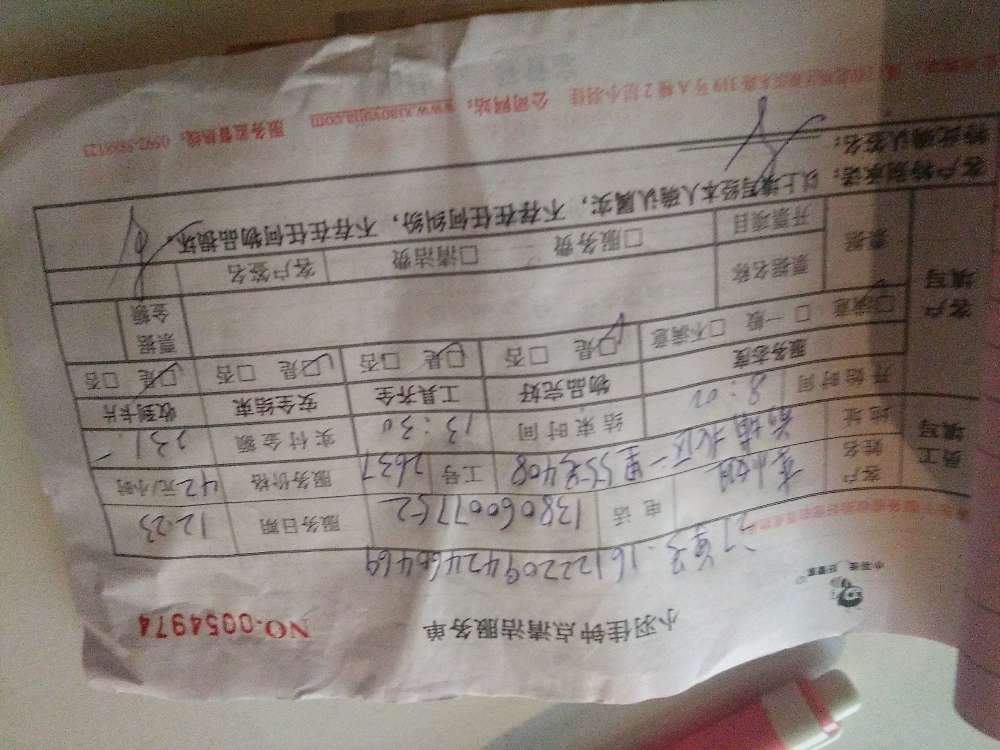 小羽佳钟点清洁服务单
NO.0054974
小羽佳 好管家
订单号:1612220942460469
员工填写
客户姓名 电话 13806007752 服务日期 12.23
地址 里55号408 工号 2637 服务价格 42元/小时
开始时间 8:00 结束时间 13:30 实付金额 231.-
服务态度 物品完好 工具齐全 安全结束 收到卡片
客户填写
□满意 □一般 □不满意 □是 □否 □是 □否 □是 □否 □是 □否
票据 票据名称 票据金额
开票项目 □服务费 □清洁费 客户签名
客户特别承诺: 以上填写经本人确认属实,不存在任何纠纷,不存在任何物品损坏。
特此确认签名:
319号A幢2层小羽佳 公司网站:www.xiaoyujia.com 服务监督热线:0592-5888123